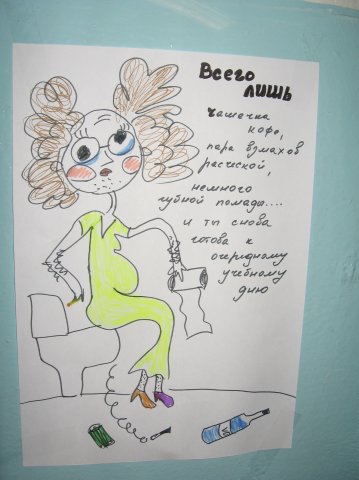 Всего
лишь
чашечка
кофе,
пара взмахов
расческой,
немного
губной помады....
и ты снова
готова к
очередному
учебному
дню